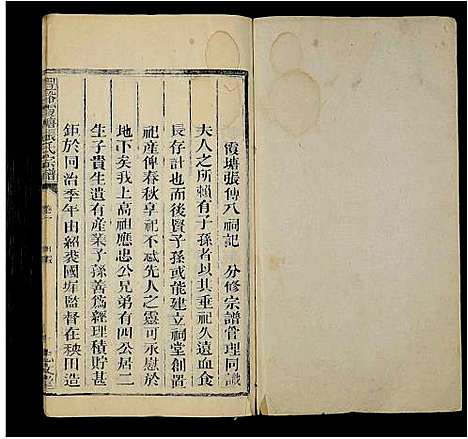 霞塘張傳八祠記　分修宗譜管理同識
夫人之所賴有子孫者以其垂祀久遠血食
長存計也而後賢子孫或能建立祠堂創置
祀產俾春秋享祀不忒先人之靈可承慰於
地下矣我上高祖應忠公兄弟有四公居二
生子貴生遺有產業子孫善為經理積貯甚
鉅於同治季年由紹裘國墀監督在秧田造
醴陵霞塘張氏宗譜